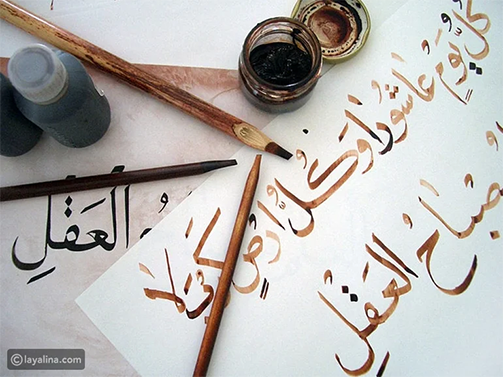 كُلُّ يَوْمٍ عَاشُورَا وَكُلُّ اَرْضٍ كَرْبَلَا
صْبَاحُ العَقْلِ
العَقْلِ
layalina.com